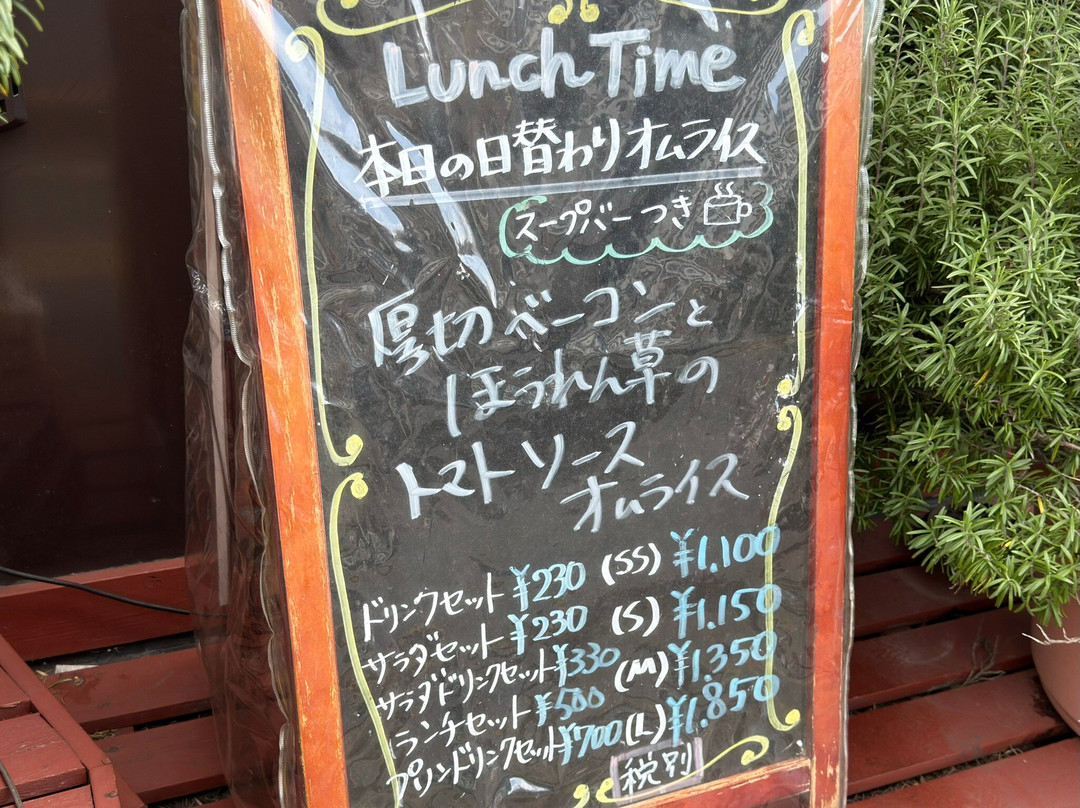 Lunch Time
本日の日替わりオムライス
スープバーつき
厚切ベーコンと
ほうれん草の
トマトソース
オムライス
ドリンクセット ¥230 (SS) ¥1.100
サラダセット ¥230 (S) ¥1.150
サラダドリンクセット ¥330 (M) ¥1.350
ランチセット ¥500 (L) ¥1.850
プリンドリンクセット ¥700
税別